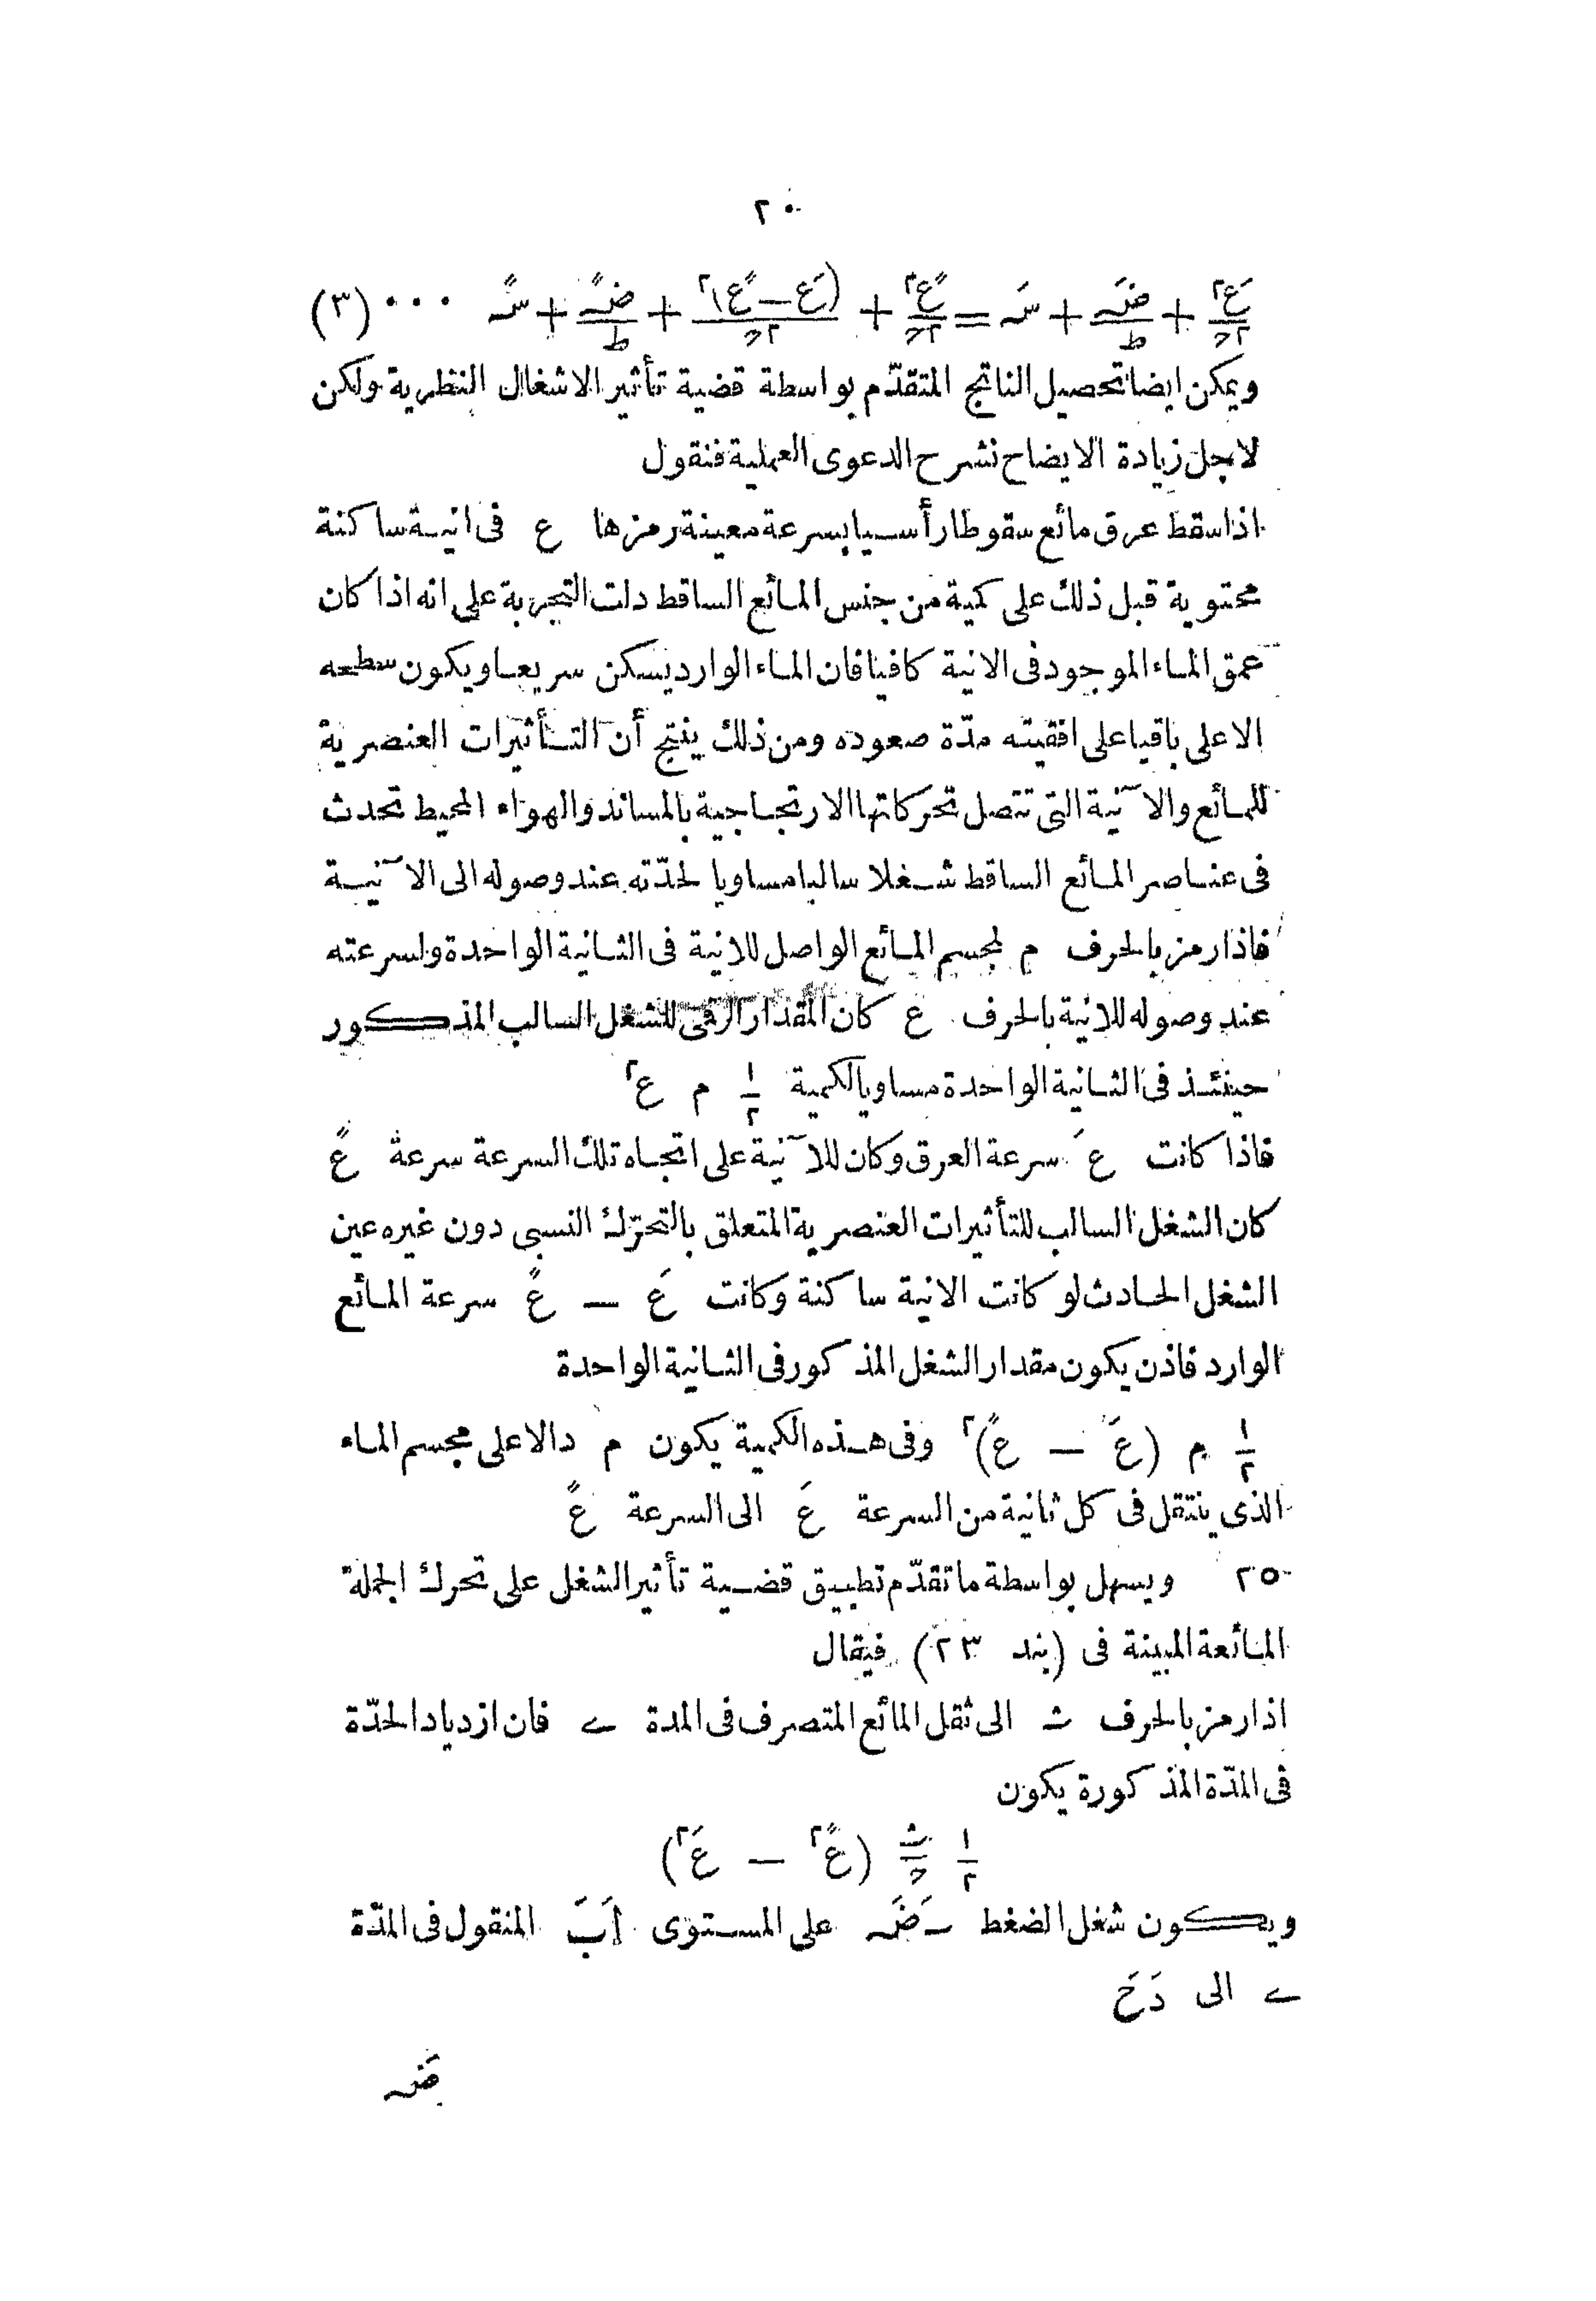 ٢٠
عَ٢/٢ح + ضَہ/ط + سَہ = عً٢/٢ح + (عَ — عً)٢/٢ح + ضًہ/ط + سًہ ••• (٣)
ويمكن ايضا تحصيل الناتج المتقدّم بواسطة قضية تأثير الاشغال النظرية ولكن
لاجل زيادة الايضاح نشرح الدعوى العملية فنقول
اذا سقط عرق مائع سقوطا رأسيا بسرعة معينة رمزها ع فى انية ساكنة
محتوية قبل ذلك على كمية من جنس المائع الساقط دلت التجربة على انه اذا كان
عمق الماء الموجود فى الانية كافيا فان الماء الوارد يسكن سريعا ويكون سطحه
الاعلى باقيا على افقيته مدّة صعوده ومن ذلك ينتج أن التأثيرات العنصرية
للمائع والآنية التى تتصل تحركاتها الارتجاجية بالمساند والهواء المحيط تحدث
فى عناصر المائع الساقط شغلا سالبا مساويا لحدّته عند وصوله الى الآنية
فاذا رمز بالحرف م لمجسم المائع الواصل للانية فى الثانية الواحدة ولسرعته
عند وصوله للانية بالحرف ع كان المقدار الرقمى للشغل السالب المذكور
حينئذ فى الثانية الواحدة مساويا لكمية ١/٢ م ع٢
فاذا كانت عَ سرعة العرق وكان للآنية على اتجاه تلك السرعة سرعة عً
كان الشغل السالب للتأثيرات العنصرية المتعلق بالتحرّك النسبى دون غيره عين
الشغل الحادث لو كانت الانية ساكنة وكانت عَ — عً سرعة المائع
الوارد فاذن يكون مقدار الشغل المذكور فى الثانية الواحدة
١/٢ م (عَ — عً)٢ وفى هذه الكمية يكون م دالا على مجسم الماء
الذى ينتقل فى كل ثانية من السرعة عَ الى السرعة عً
٢٥ ويسهل بواسطة ما تقدّم تطبيق قضية تأثير الشغل على تحرك الجملة
المائعة المبينة فى (بند ٢٣) فيقال
اذا رمز بالحرف ث الى ثقل المائع المتصرف فى المدة ے فان ازدياد الحدّة
فى المدّة المذكورة يكون
١/٢ ث/ح (عً٢ — عَ٢)
ويكون شغل الضغط سَضَہ على المستوى اَبَ المنقول فى المدّة
ے الى دَحَ
ضَہ